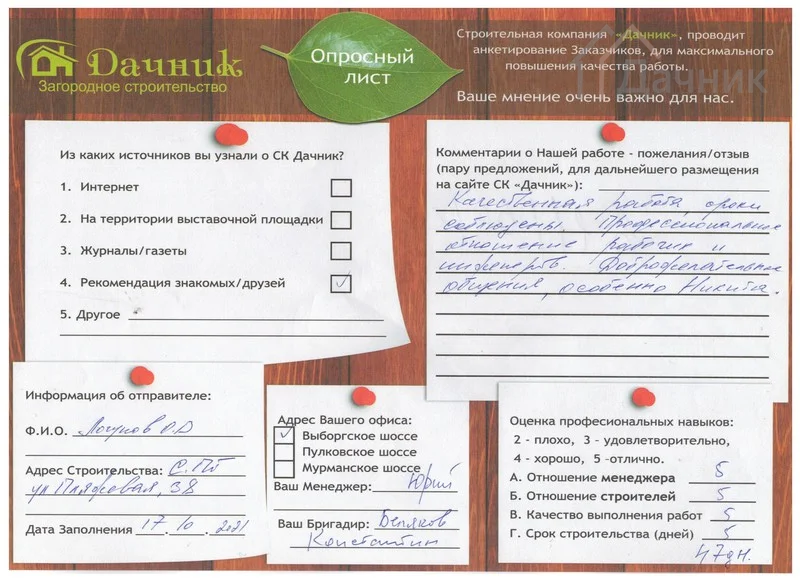 Дачник
Загородное строительство
Опросный
лист
Строительная компания «Дачник», проводит
анкетирование Заказчиков, для максимального
повышения качества работы.
Ваше мнение очень важно для нас.
Дачник
Из каких источников вы узнали о СК Дачник?
1. Интернет
2. На территории выставочной площадки
3. Журналы/газеты
4. Рекомендация знакомых/друзей
5. Другое
Комментарии о Нашей работе - пожелания/отзыв
(пару предложений, для дальнейшего размещения
на сайте СК «Дачник»):
Качественная работа, сроки
соблюдены. Профессиональное
отношение рабочих и
инженеров. Доброжелательное
общения, особенно Никита.
Информация об отправителе:
Ф.И.О. Логунов О.В
Адрес Строительства: С.Пт
ул Пляжевая, 38
Дата Заполнения 17.10.2021
Адрес Вашего офиса:
Выборгское шоссе
Пулковское шоссе
Мурманское шоссе
Ваш Менеджер: Юрий
Ваш Бригадир: Беляков
Константин
Оценка професиональных навыков:
2 - плохо, 3 - удовлетворительно,
4 - хорошо, 5 -отлично.
А. Отношение менеджера 5
Б. Отношение строителей 5
В. Качество выполнения работ 5
Г. Срок строительства (дней) 5
47дн.